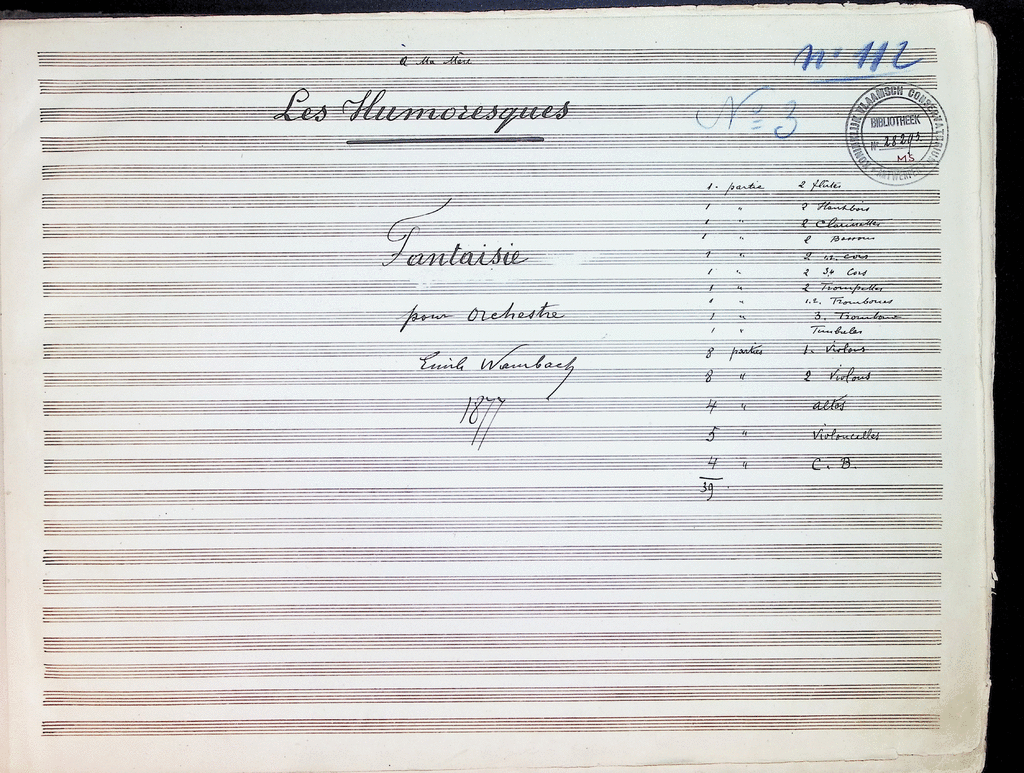 à Ma Mère
n° 112
Les Humoresques
N° 3
KONINKLIJK VLAAMSCH CONSERVATORIUM
ANTWERPEN
BIBLIOTHEEK
N°
MS
Fantaisie
pour Orchestre
Emile Wambach
1877
1 - partie 2 flûtes
1 " 2 Hautbois
1 " 2 Clarinettes
1 " 2 Bassons
1 " 2 1.2. Cors
1 " 2 3.4 Cors
1 " 2 Trompettes
1 " 1.2. Trombones
1 " 3. Trombone
1 " Timbales
8 parties 1. Violons
8 " 2 Violons
4 " altos
5 " Violoncelles
4 " C. B.
39